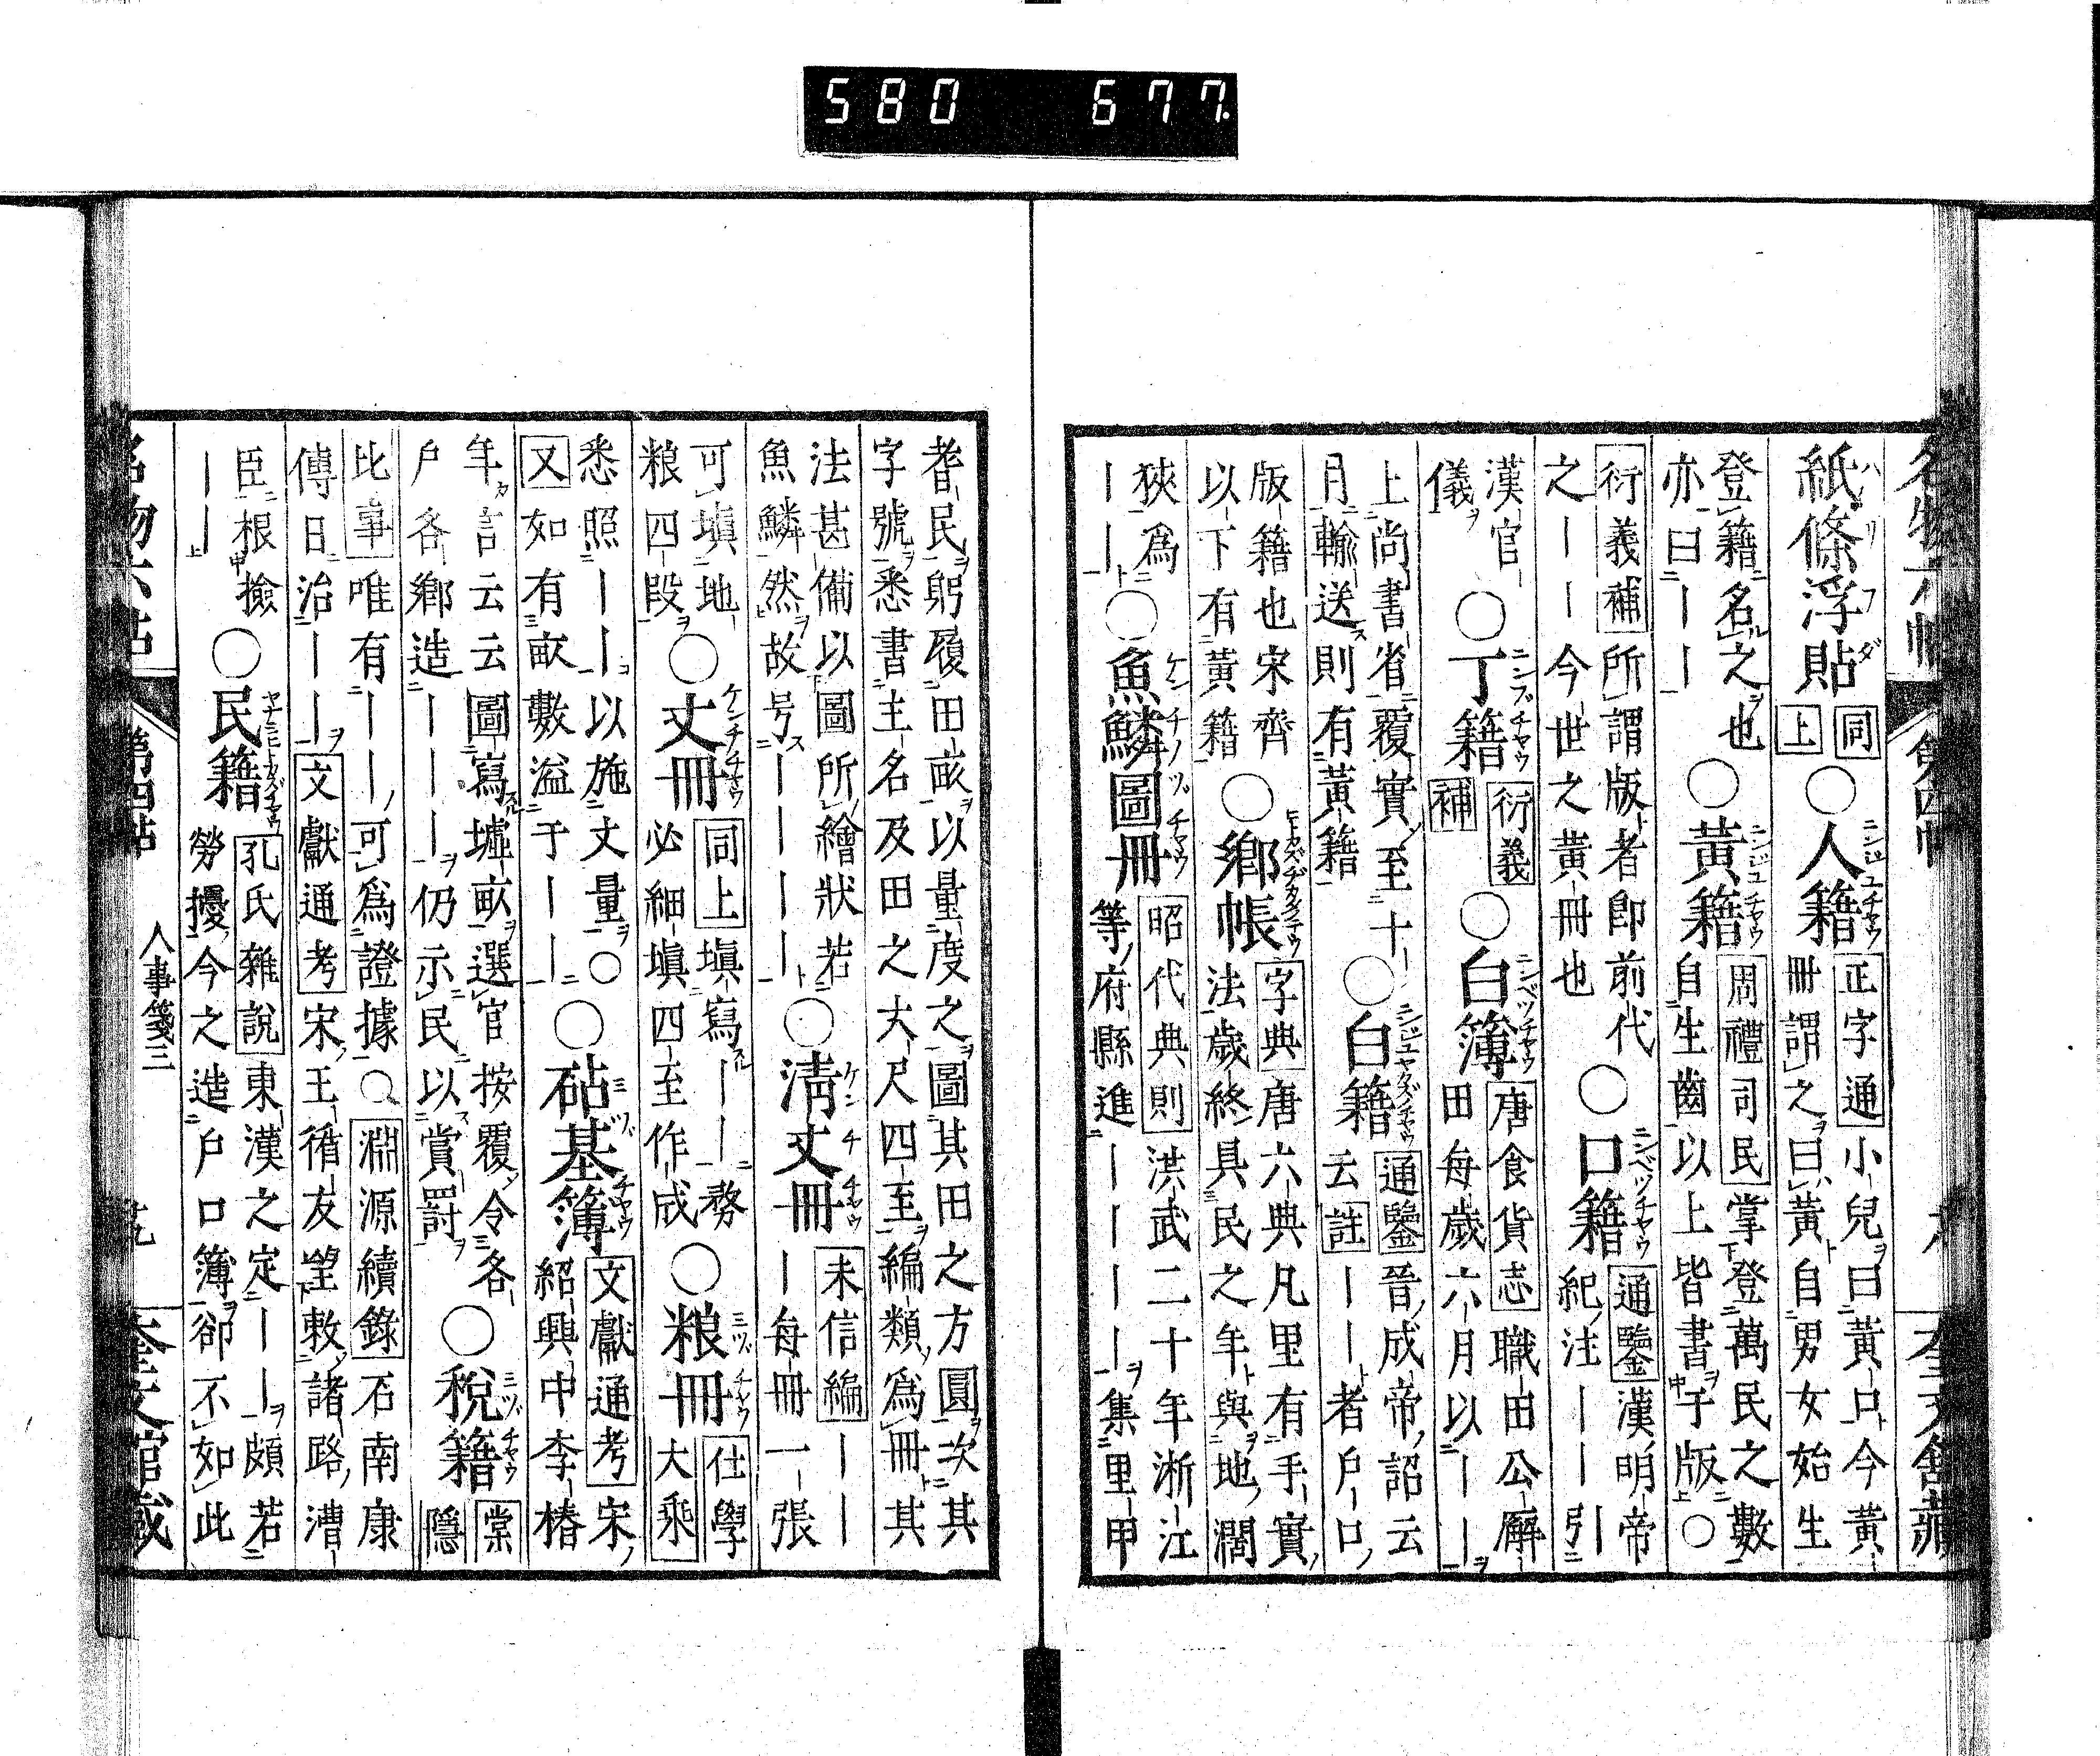 580 677.
紙條浮貼 同上 ○人籍 正字通 小兒曰黃口今黃
冊謂之曰黃自男女始生
登籍名之也 ○黃籍 周禮司民 掌登萬民之數
亦曰｜｜ 自生齒以上皆書于版○
衍義補 所謂版者即前代 ○口籍 通鑒 漢明帝
之｜｜今世之黃冊也 紀注｜｜引
漢官儀 ○丁籍 衍義補 ○白簿 唐食貨志 職田公廨
田每歲六月以｜｜
上尚書省覆實至十 ○白籍 通鑒 晉成帝詔云
月輸送則有黃籍 註 云｜｜者戶口
版籍也宋齊 ○鄉帳 字典 唐六典凡里有手實
以下有黃籍 法歲終具民之年與地濶
狹為｜｜ ○魚鱗圖冊 昭代典則 洪武二十年浙江
等府縣進｜｜｜｜集里甲
耆民躬履田畝以量度之圖其田之方圓次其
字號悉書主名及田之大尺四至編類為冊其
法甚備以圖所繪狀若 ○清丈冊 未信編 ｜｜
魚鱗然故号｜｜｜｜ ｜每冊一張
可塡地 ○丈冊 同上 塡寫｜｜務 ○粮冊 仕學大乘
粮四段 必細塡四至作成
悉照｜｜以施丈量○ ○砧基簿 文獻通考 宋
又如有畝數溢于｜｜ 紹興中李椿
年言云云圖寫墟畝選官按覆令各 ○稅籍 棠隱
戶各鄉造｜｜｜仍示民以賞罰
比事 唯有｜｜｜可為證據○ 淵源續錄 石南康
傳曰治｜｜ 文獻通考 宋王循友望敕諸路漕
臣根撿 ○民籍 孔氏雜說 東漢之定｜｜頗若
｜｜ 勞擾今之造戶口簿卻不如此
第四帖
人事箋三